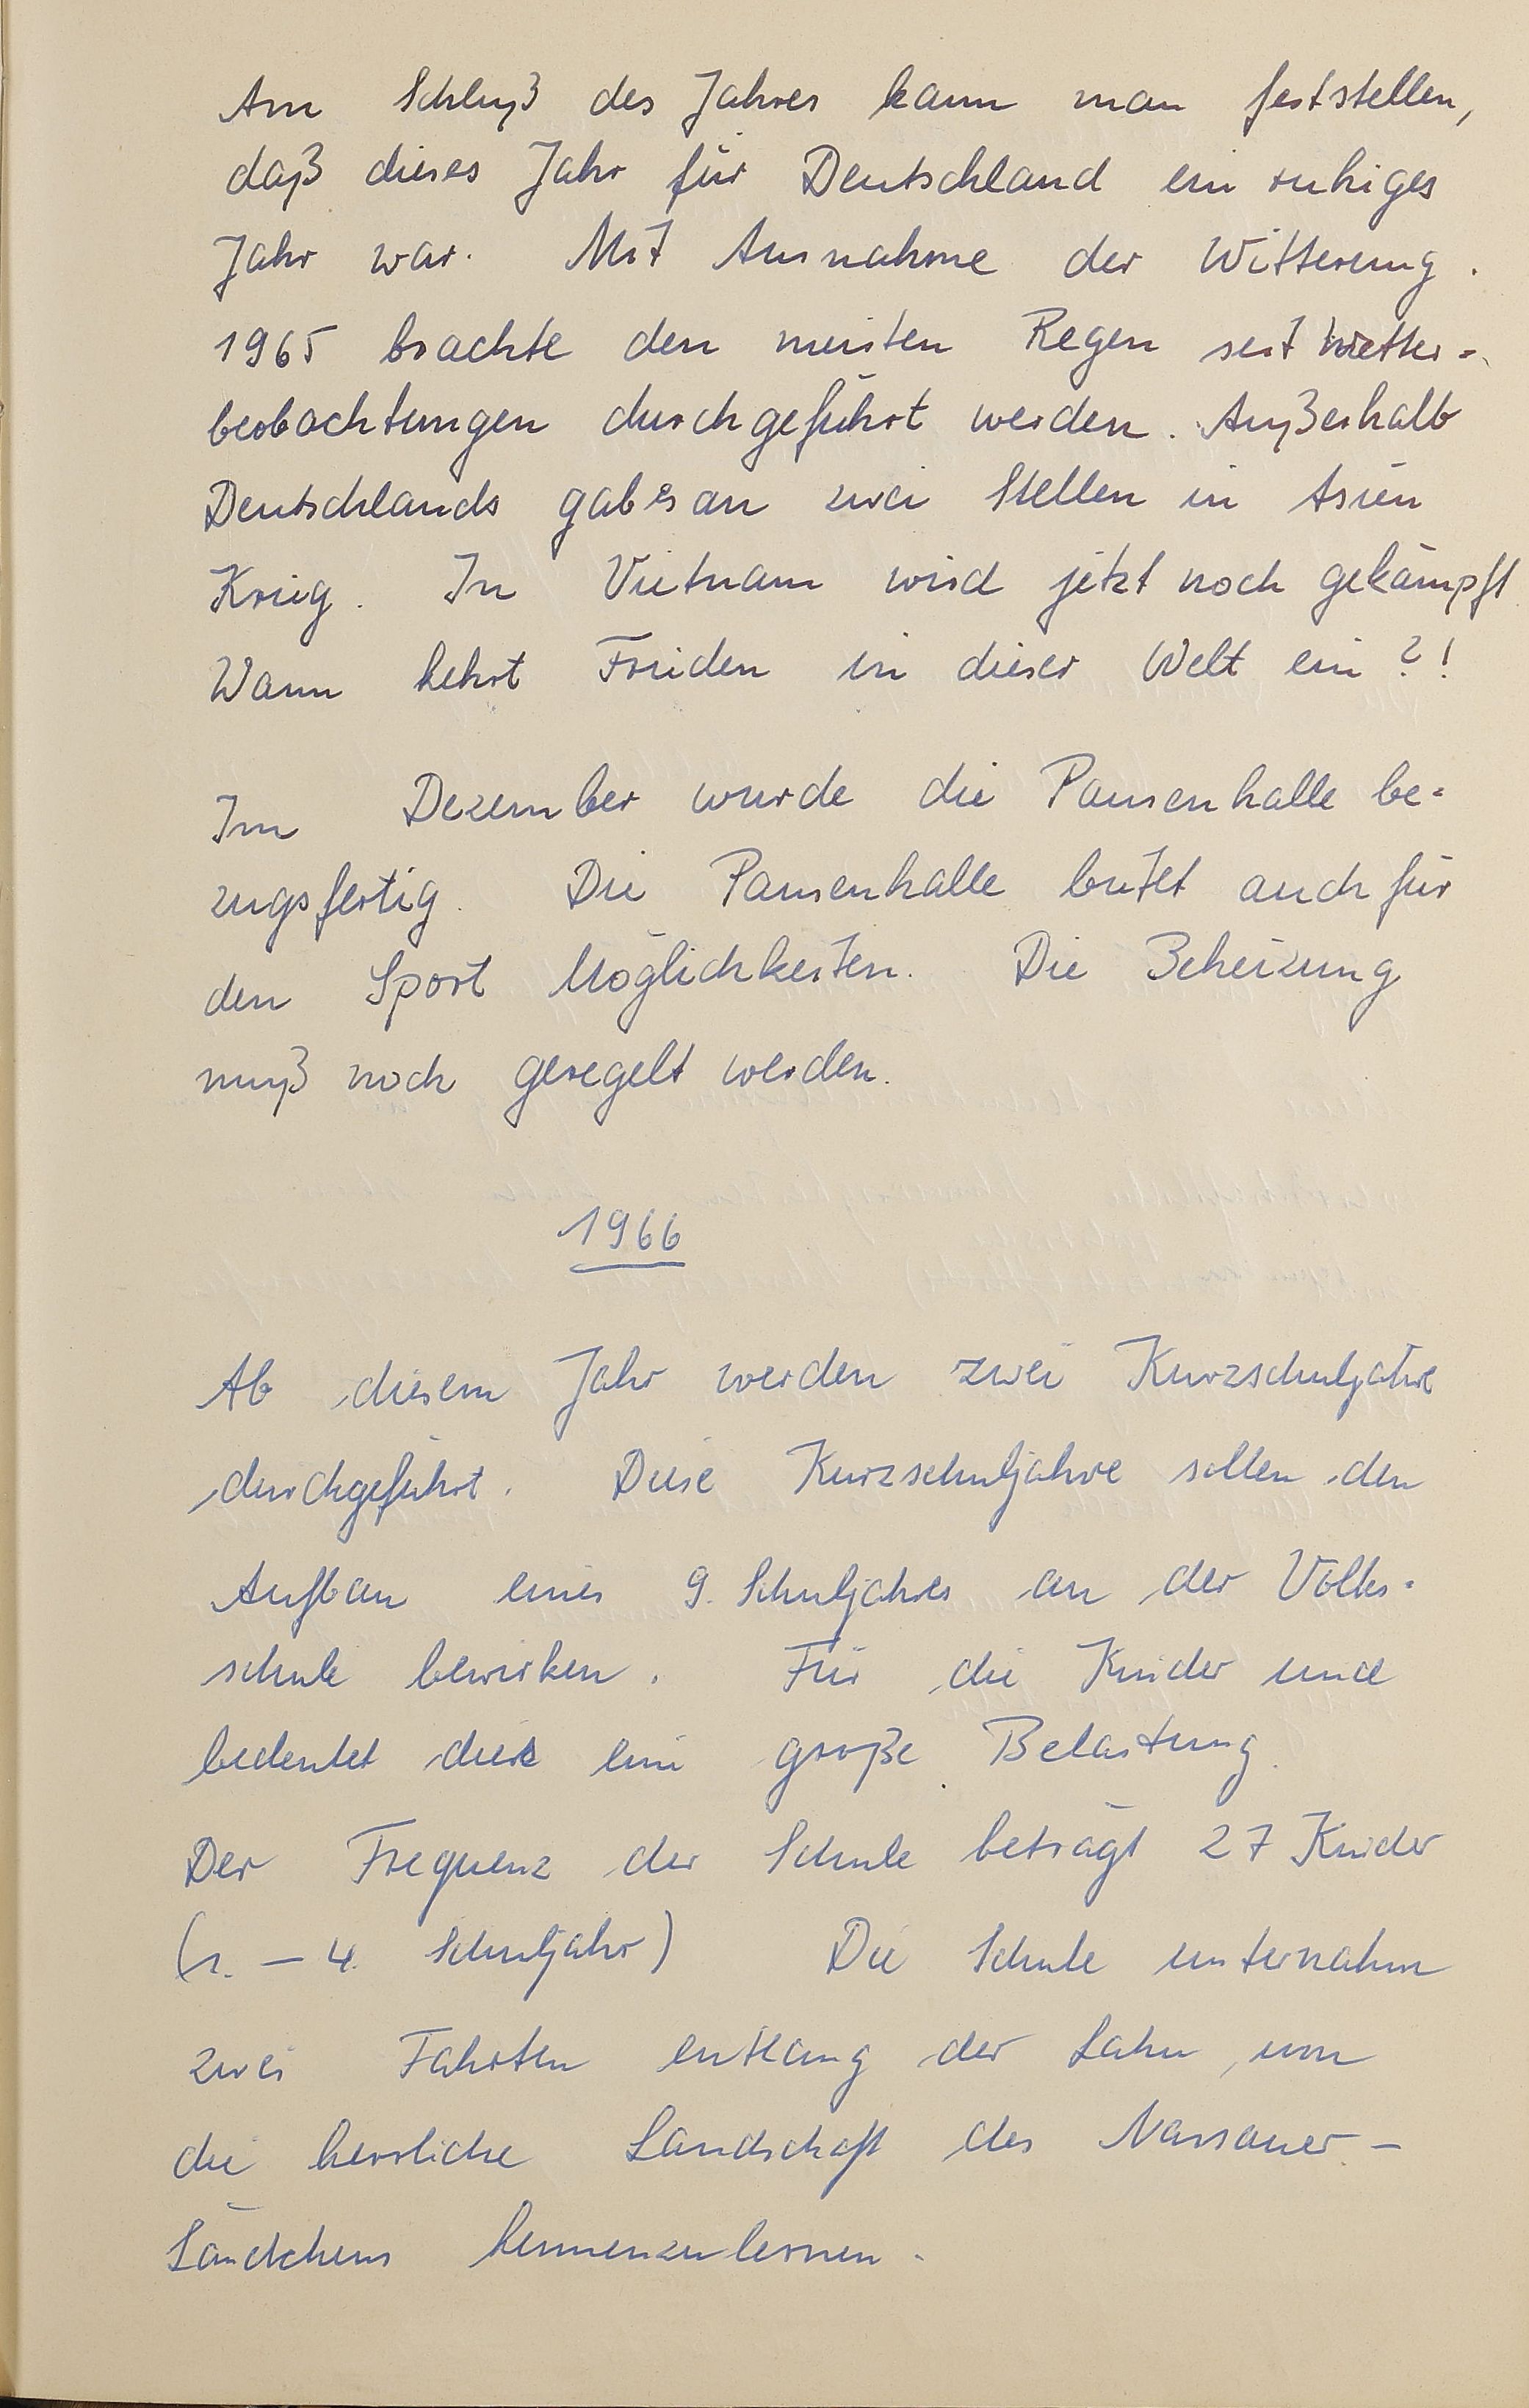 Am Schluß des Jahres kann man feststellen,
daß dieses Jahr für Deutschland ein ruhiges
Jahr war. Mit Ausnahme der Witterung.
1965 brachte den meisten Regen seit Wetter-
beobachtungen durchgeführt werden. Außerhalb
Deutschlands gab es an zwei Stellen in Asien
Krieg. In Vietnam wird jetzt noch gekämpft
Wann kehrt Frieden in dieser Welt ein?!
Im Dezember wurde die Pausenhalle be-
zugsfertig. Die Pausenhalle bietet auch für
den Sport Möglichkeiten. Die Beheizung
muß noch geregelt werden.
1966
Ab diesem Jahr werden zwei Kurzschuljahre
durchgeführt. Diese Kurzschuljahre sollen den
Aufbau eines 9. Schuljahres an der Volks-
schule bewirken. Für die Kinder und
bedeutet dies eine große Belastung.
Der Frequenz der Schule beträgt 27 Kinder
(1. – 4. Schuljahr) Die Schule unternahm
zwei Fahrten entlang der Lahn, um
die herrliche Landschaft des Nassauer-
Ländchens kennenzulernen.